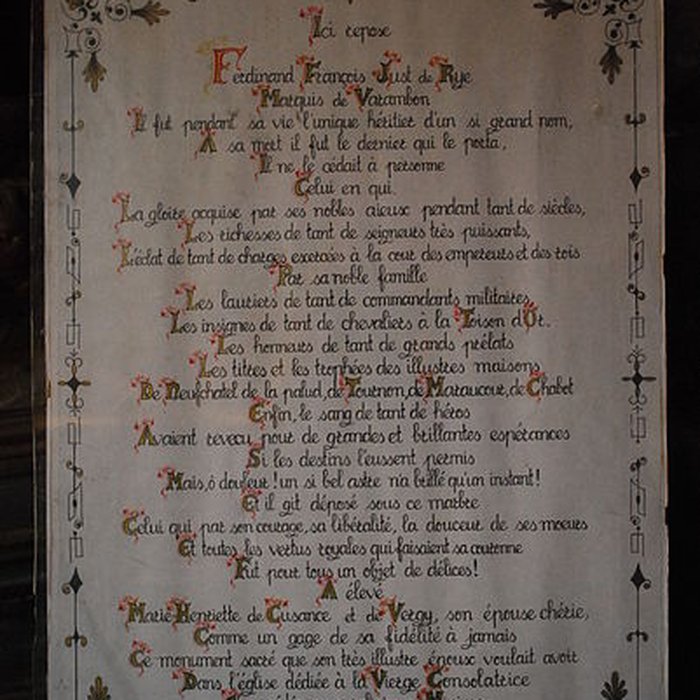 Ici repose
Ferdinand François Just de Rye
Marquis de Varambon
Il fut pendant sa vie l'unique héritier d'un si grand nom,
A sa mort il fut le dernier qui le porta,
Il ne le cédait à personne
Celui en qui.
La gloire acquise par ses nobles aïeux pendant tant de siècles,
Les richesses de tant de seigneurs très puissants,
L'éclat de tant de charges exercées à la cour des empereurs et des rois
Par sa noble famille
Les lauriers de tant de commandants militaires,
Les insignes de tant de chevaliers à la Toison d'Or.
Les honneurs de tant de grands prélats
Les titres et les trophées des illustres maisons
De Neufchatel de la palud, de Tournon, de Maraucour, de Chabot
Enfin, le sang de tant de héros
Avaient revécu pour de grandes et brillantes espérances
Si les destins l'eussent permis
Mais, ô douleur ! un si bel astre n'a brillé qu'un instant !
Et il gît déposé sous ce marbre
Celui qui par son courage, sa libéralité, la douceur de ses moeurs
Et toutes les vertus royales qui faisaient sa couronne
Fut pour tous un objet de délices !
A élevé
Marie Henriette de Cusance et de Vergy, son épouse chérie,
Comme un gage de sa fidélité à jamais
Ce monument sacré que son très illustre époux voulait avoir
Dans l'église dédiée à la Vierge Consolatrice